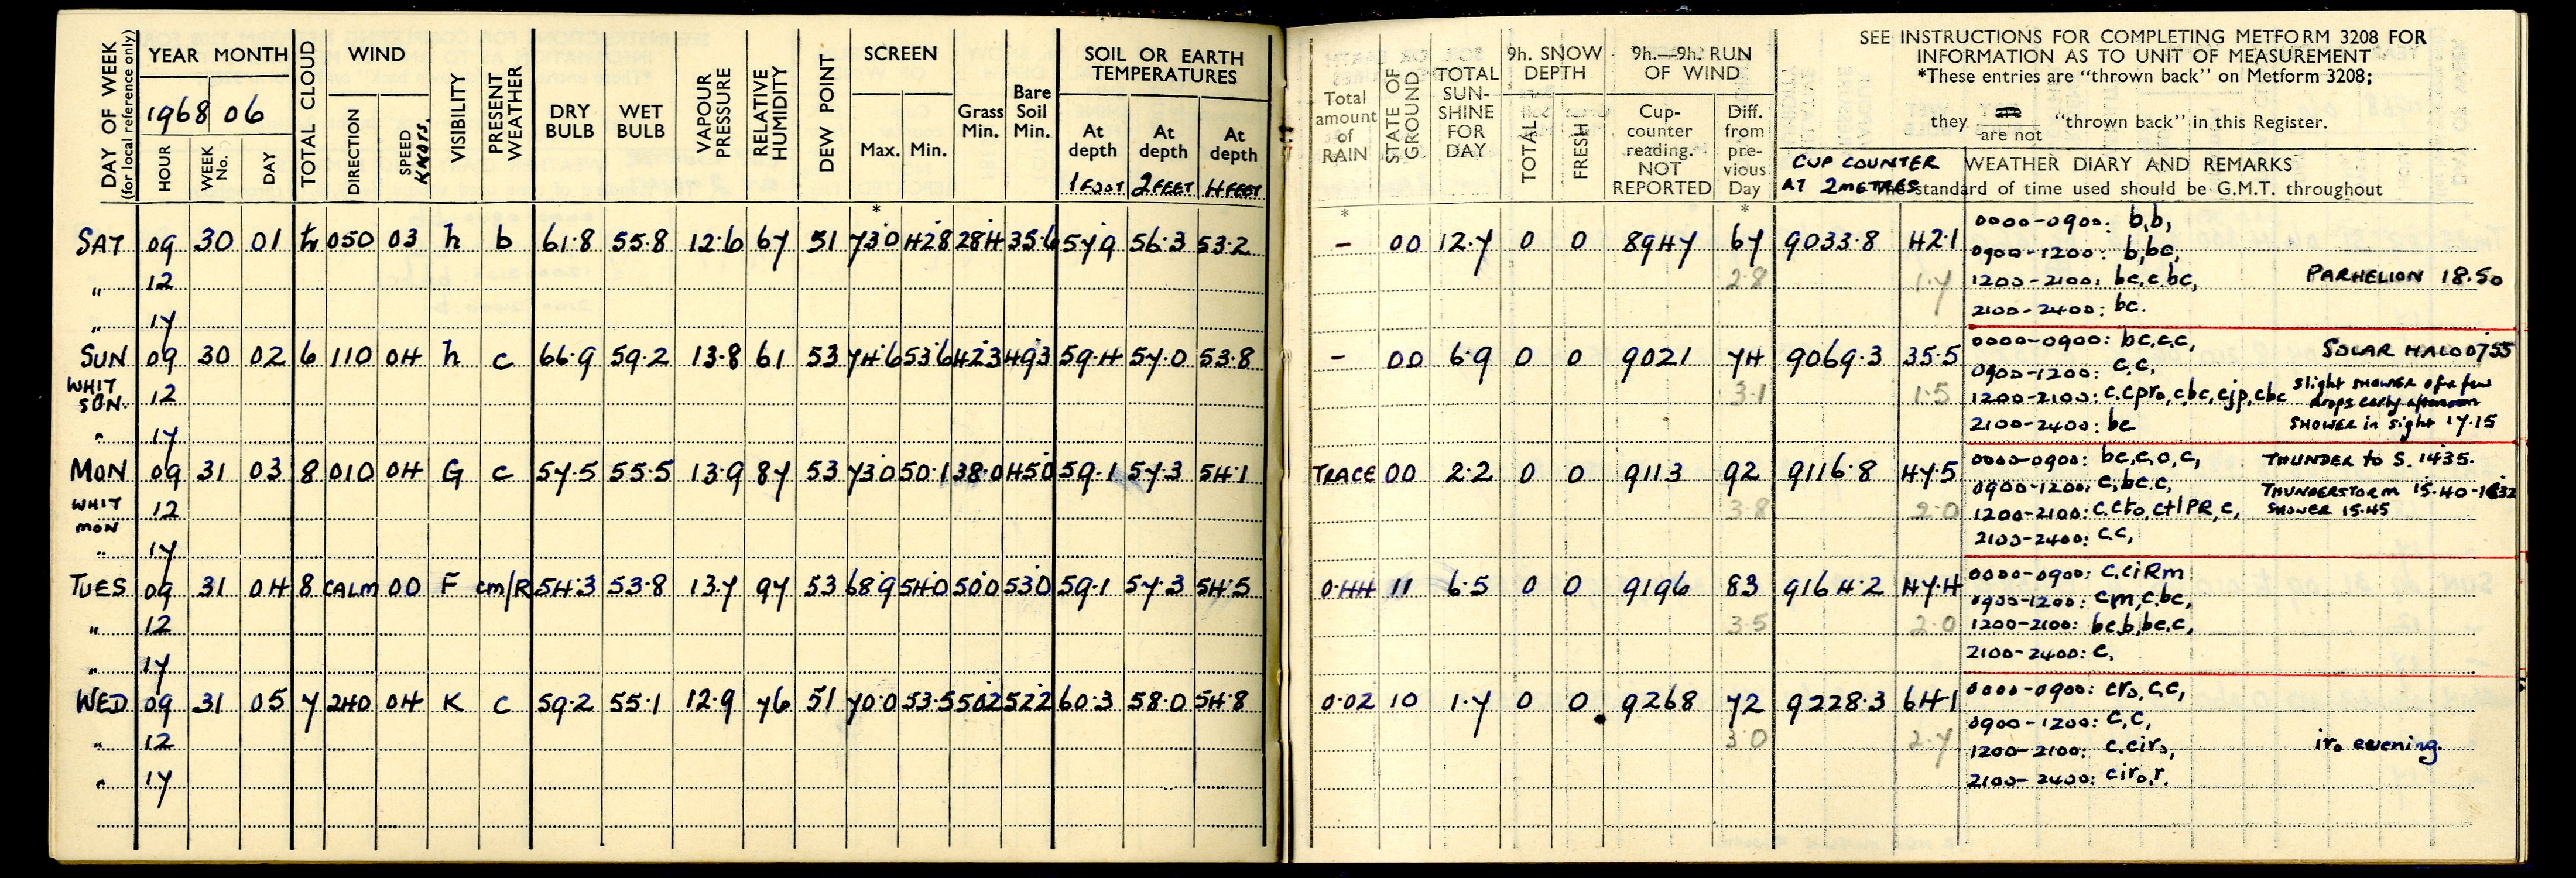 DAY OF WEEK (for local reference only)
YEAR MONTH
1968 06
HOUR WEEK No. DAY
TOTAL CLOUD
WIND
DIRECTION SPEED KNOTS.
VISIBILITY
PRESENT WEATHER
DRY BULB
WET BULB
VAPOUR PRESSURE
RELATIVE HUMIDITY
DEW POINT
SCREEN
Max. Min.
Grass Min.
Bare Soil Min.
SOIL OR EARTH TEMPERATURES
At depth 1 FOOT
At depth 2 FEET
At depth 4 FEET
SAT 09 30 01 tr 050 03 h b 61.8 55.8 12.6 67 51 *73.0 42.8 28.4 35.6 57.9 56.3 53.2
" 12
" 17
SUN 09 30 02 6 110 04 h c 66.9 59.2 13.8 61 53 74.6 53.6 42.3 49.3 59.4 57.0 53.8
WHIT SUN. 12
" 17
MON 09 31 03 8 010 04 G c 57.5 55.5 13.9 87 53 73.0 50.1 38.0 45.0 59.1 57.3 54.1
WHIT MON 12
" 17
TUES 09 31 04 8 CALM 00 F cm/R 54.3 53.8 13.7 97 53 68.9 54.0 50.0 53.0 59.1 57.3 54.5
" 12
" 17
WED 09 31 05 7 240 04 K c 59.2 55.1 12.9 76 51 70.0 53.5 50.2 52.2 60.3 58.0 54.8
" 12
" 17
Total amount of RAIN
STATE OF GROUND
TOTAL SUN-SHINE FOR DAY
9h. SNOW DEPTH
TOTAL FRESH
9h.—9h. RUN OF WIND
Cup-counter reading. NOT REPORTED
Diff. from pre-vious Day
SEE INSTRUCTIONS FOR COMPLETING METFORM 3208 FOR
INFORMATION AS TO UNIT OF MEASUREMENT
*These entries are "thrown back" on Metform 3208;
they are / are not "thrown back" in this Register.
CUP COUNTER AT 2 METRES
WEATHER DIARY AND REMARKS
The standard of time used should be G.M.T. throughout
* *
– 00 12.7 0 0 8947 67 9033.8 42.1 0000-0900: b,b,
0900-1200: b,bc,
2.8 1.7 1200-2100: bc,c.bc, PARHELION 18.50
2100-2400: bc.
– 00 6.9 0 0 9021 74 9069.3 35.5 0000-0900: bc,c,c, SOLAR HALO 0755
0900-1200: c.c,
3.1 1.5 1200-2100: c.cpro,cbc,cjp,cbc slight SHOWER of a few drops early afternoon
2100-2400: bc SHOWER in sight 17.15
TRACE 00 2.2 0 0 9113 92 9116.8 47.5 0000-0900: bc,c,o,c, THUNDER to S. 1435.
0900-1200: c,bc.c, THUNDERSTORM 15.40-1632
3.8 2.0 1200-2100: c.cto,ctlPR,c, SHOWER 15.45
2100-2400: c.c,
0.44 11 6.5 0 0 9196 83 9164.2 47.4 0000-0900: c.ciRm
0900-1200: cm,c.bc,
3.5 2.0 1200-2100: bc,b,bc,c,
2100-2400: c,
0.02 10 1.7 0 0 9268 72 9228.3 64.1 0000-0900: cro,c,c,
0900-1200: c,c,
3.0 2.7 1200-2100: c.ciro, iro evening.
2100-2400: ciro,r.